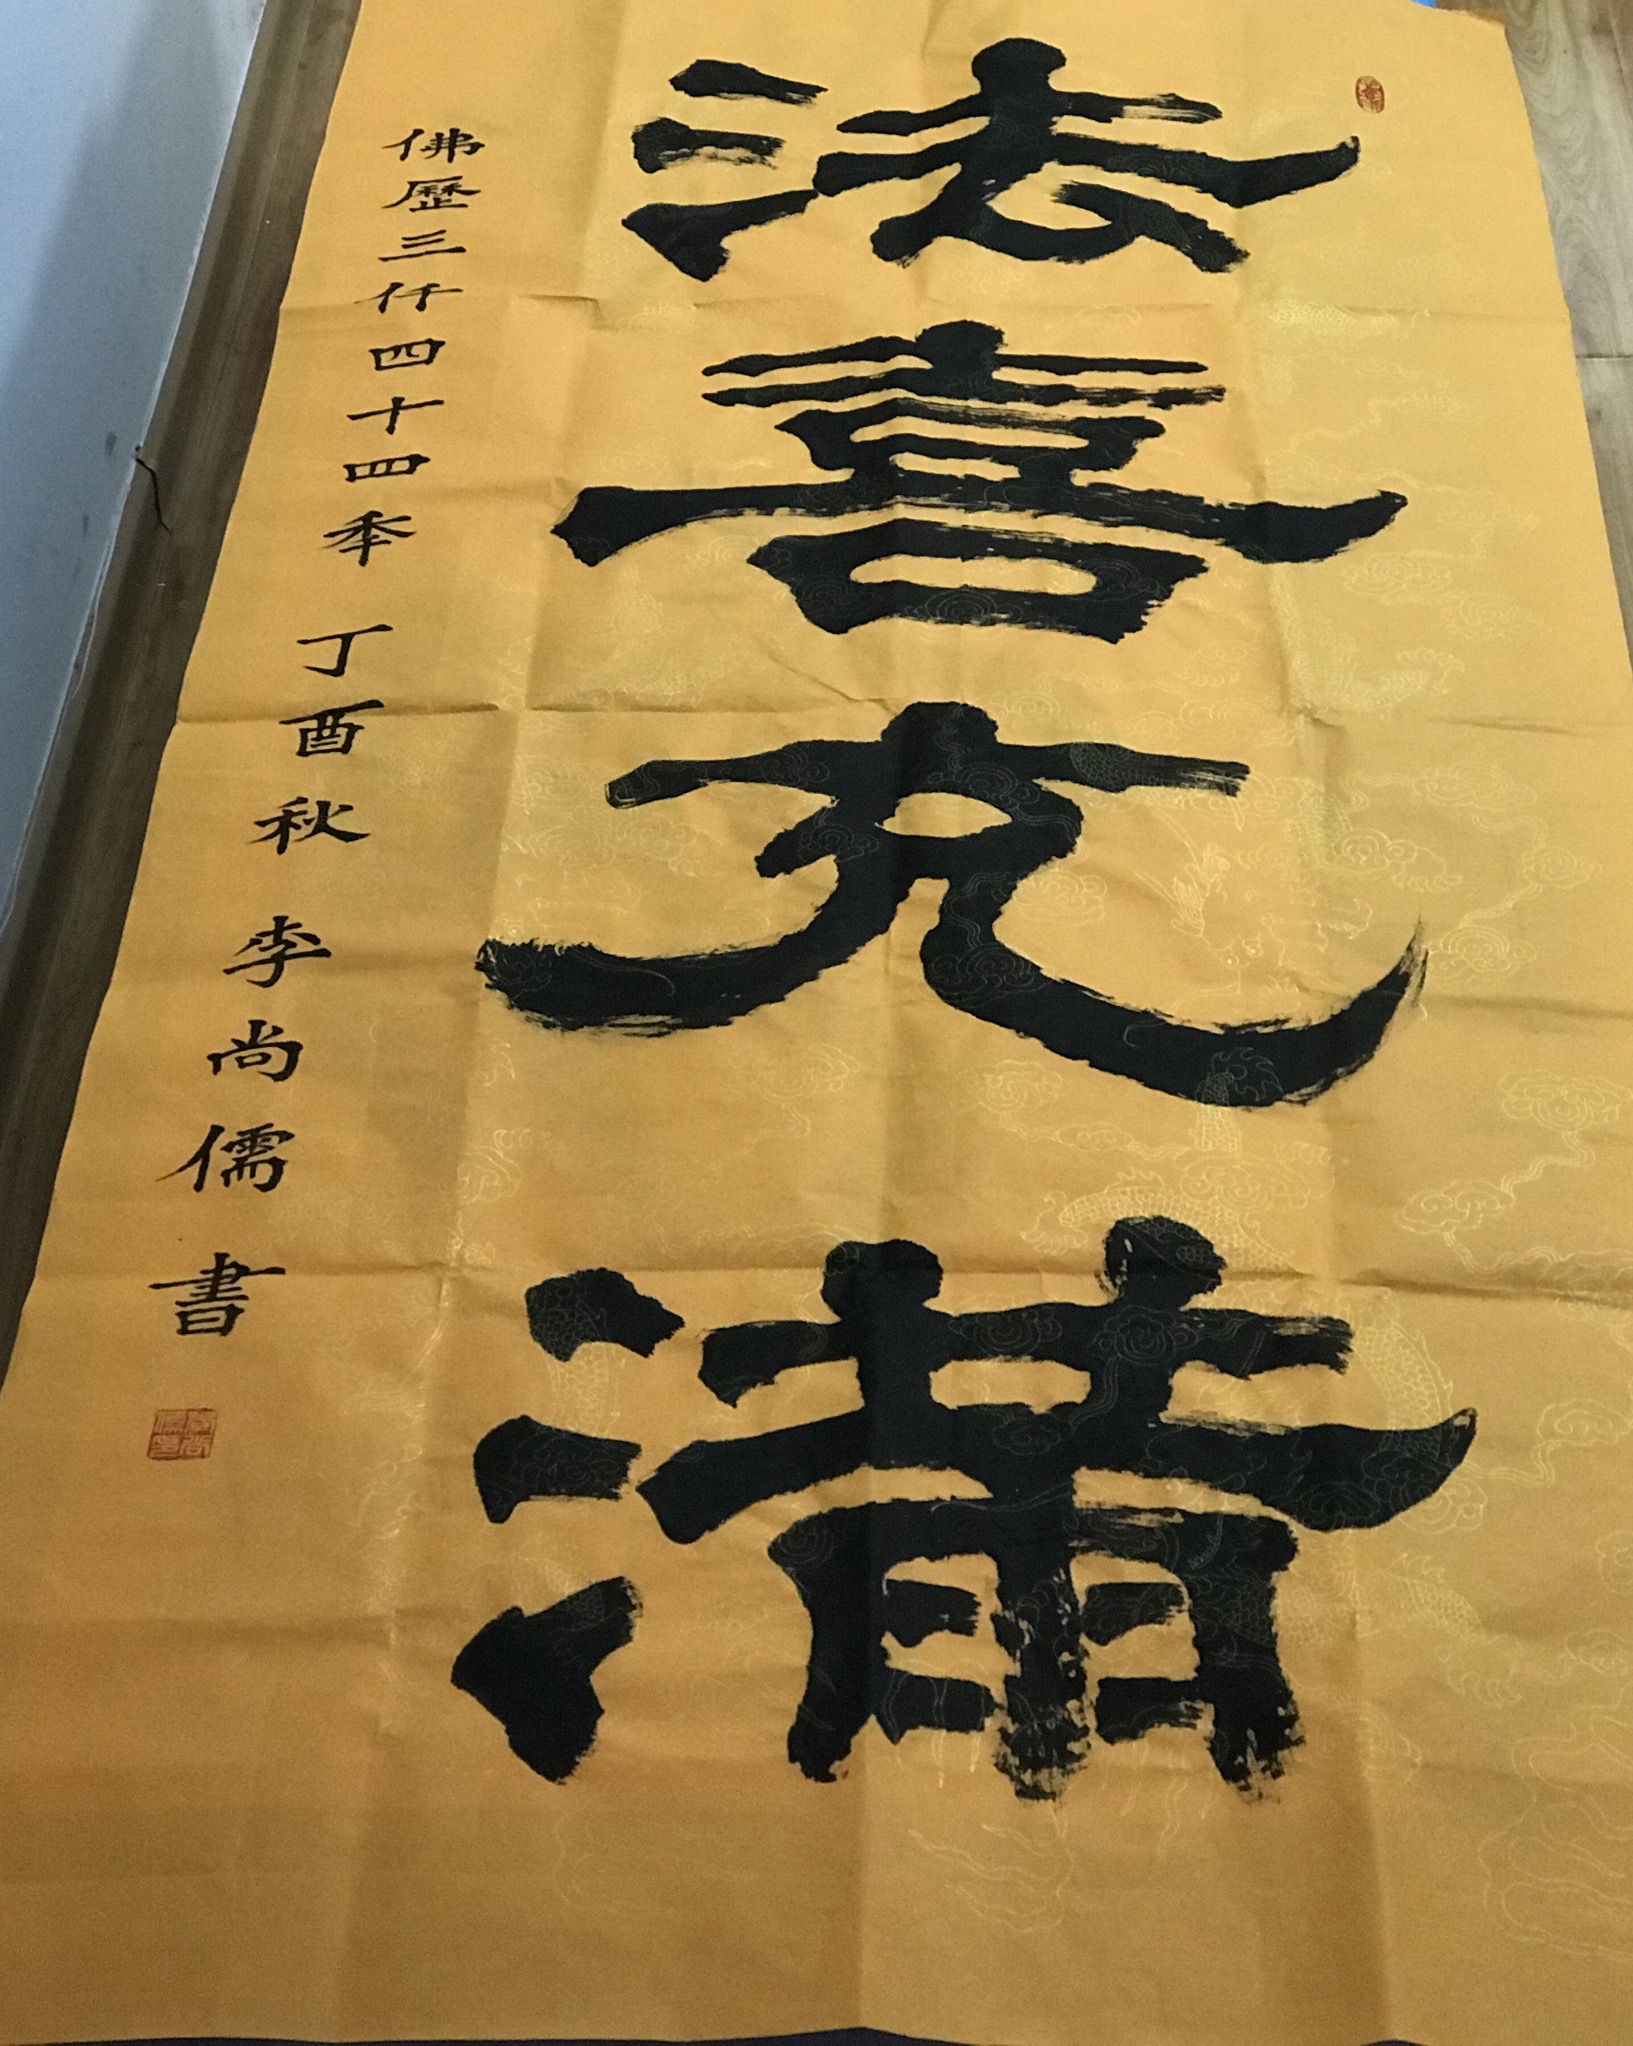 法喜充滿
佛歷三仟四十四季 丁酉秋 李尚儒書